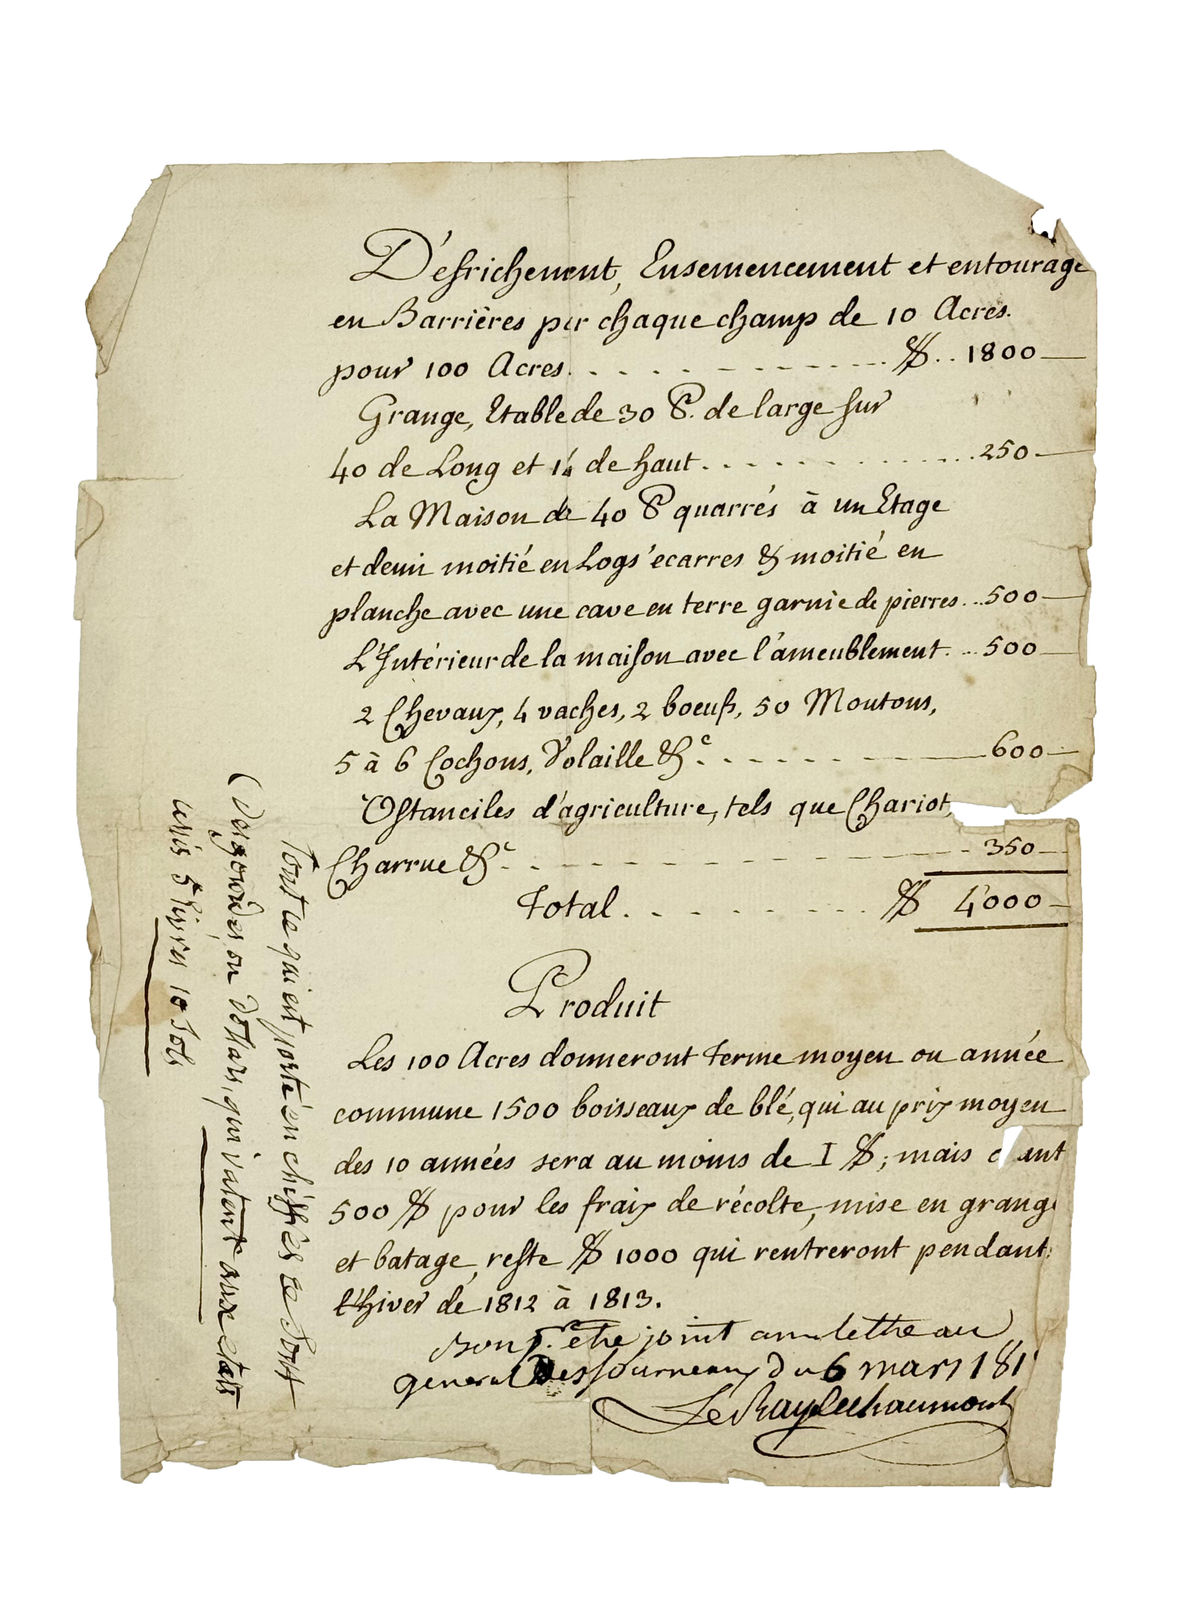 Défrichement, Ensemencement et entourage
en Barrières par chaque champ de 10 Acres.
pour 100 Acres. . . . . . . . . . . . . $ . . 1800
Grange, Etable de 30 P. de large sur
40 de Long et 14 de haut. . . . . . . . . . . . 250
La Maison de 40 P quarrés à un Etage
et demi moitié en Logs écarres & moitié en
planche avec une cave en terre garnie de pierres . . 500
L'Intérieur de la maison avec l'ameublement. . . 500
2 Chevaux, 4 vaches, 2 boeufs, 50 Moutons,
5 à 6 Cochons, Volaille &c. . . . . . . . 600
Ostanciles d'agriculture, tels que Chariot,
Charrue &c . . . . . . . . . . . . . 350
Total . . . . . . . . $ 4000
Produit
Les 100 Acres donneront terme moyen ou année
commune 1500 boisseaux de blé, qui au prix moyen
des 10 années sera au moins de 1 $; mais
500 $ pour les fraix de récolte, mise en grange
et batage, reste $ 1000 qui rentreront pendant
l'hiver de 1812 à 1813.
Bon pr. être joint a ma lettre au
general Desfourneaux du 6 mars 181
Le Ray de Chaumont
Tout ce qui est porté en chiffres ce sont
(des gourdes, ou dollars, qui valent aux etats
unis 5 livres 10 sols